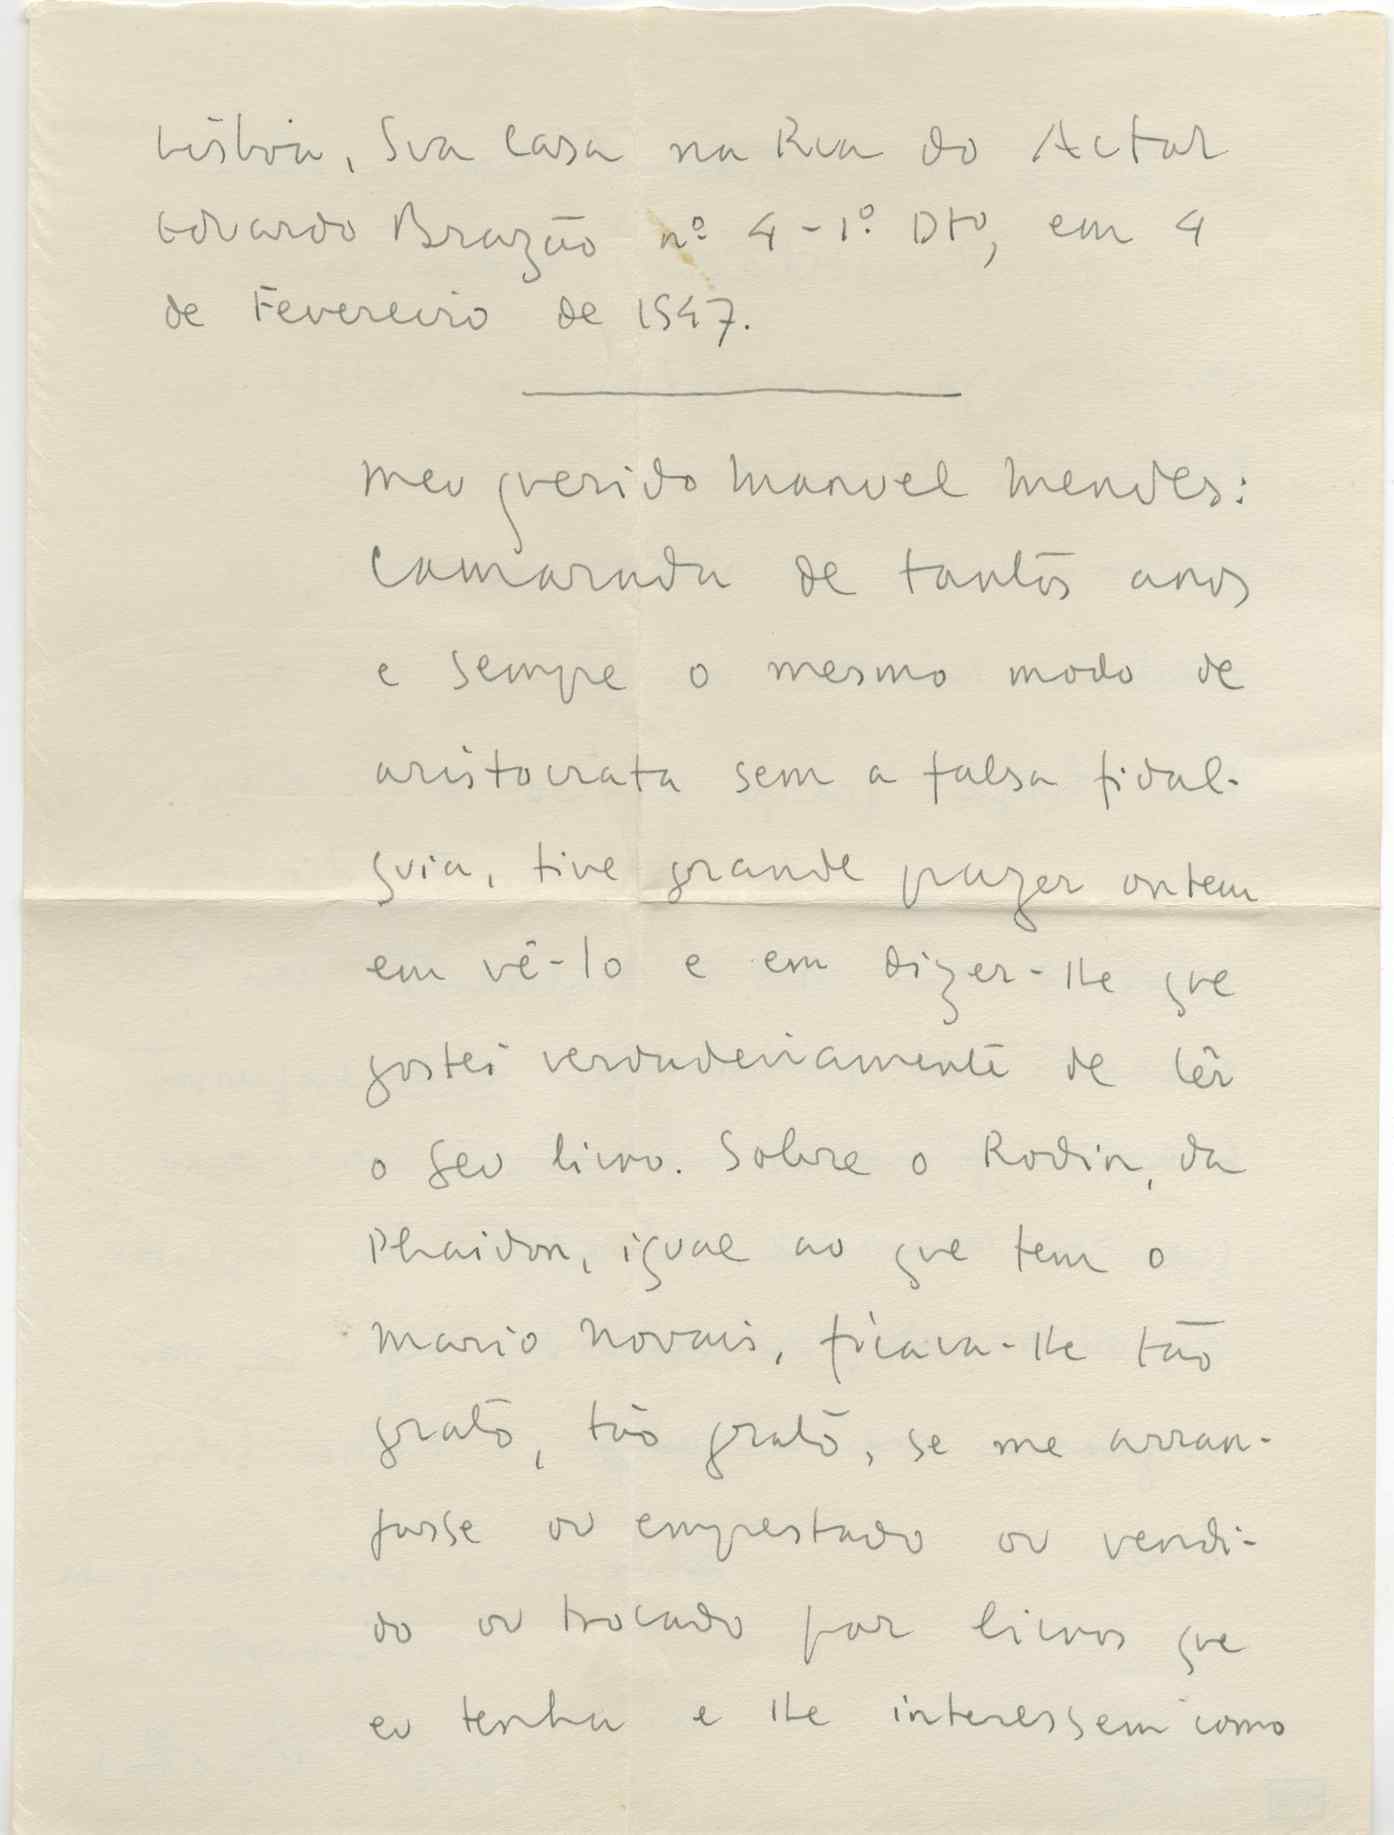 Lisboa, Sua Casa na Rua do Actor
Eduardo Brazão nº 4-1º Dto, em 4
de Fevereiro de 1947.
Meu querido Manuel Mendes:
Camarada de tantos anos
e sempre o mesmo modo de
aristocrata sem a falsa fidal-
guia, tive grande prazer ontem
em vê-lo e em dizer-lhe que
gostei verdadeiramente de lêr
o seu livro. Sobre o Rodin, da
Phaidon, igual ao que tem o
Mario Novais, ficava-lhe tão
grato, tão grato, se me arran-
jasse ou emprestado ou vendi-
do ou trocado por livros que
eu tenha e lhe interessem como